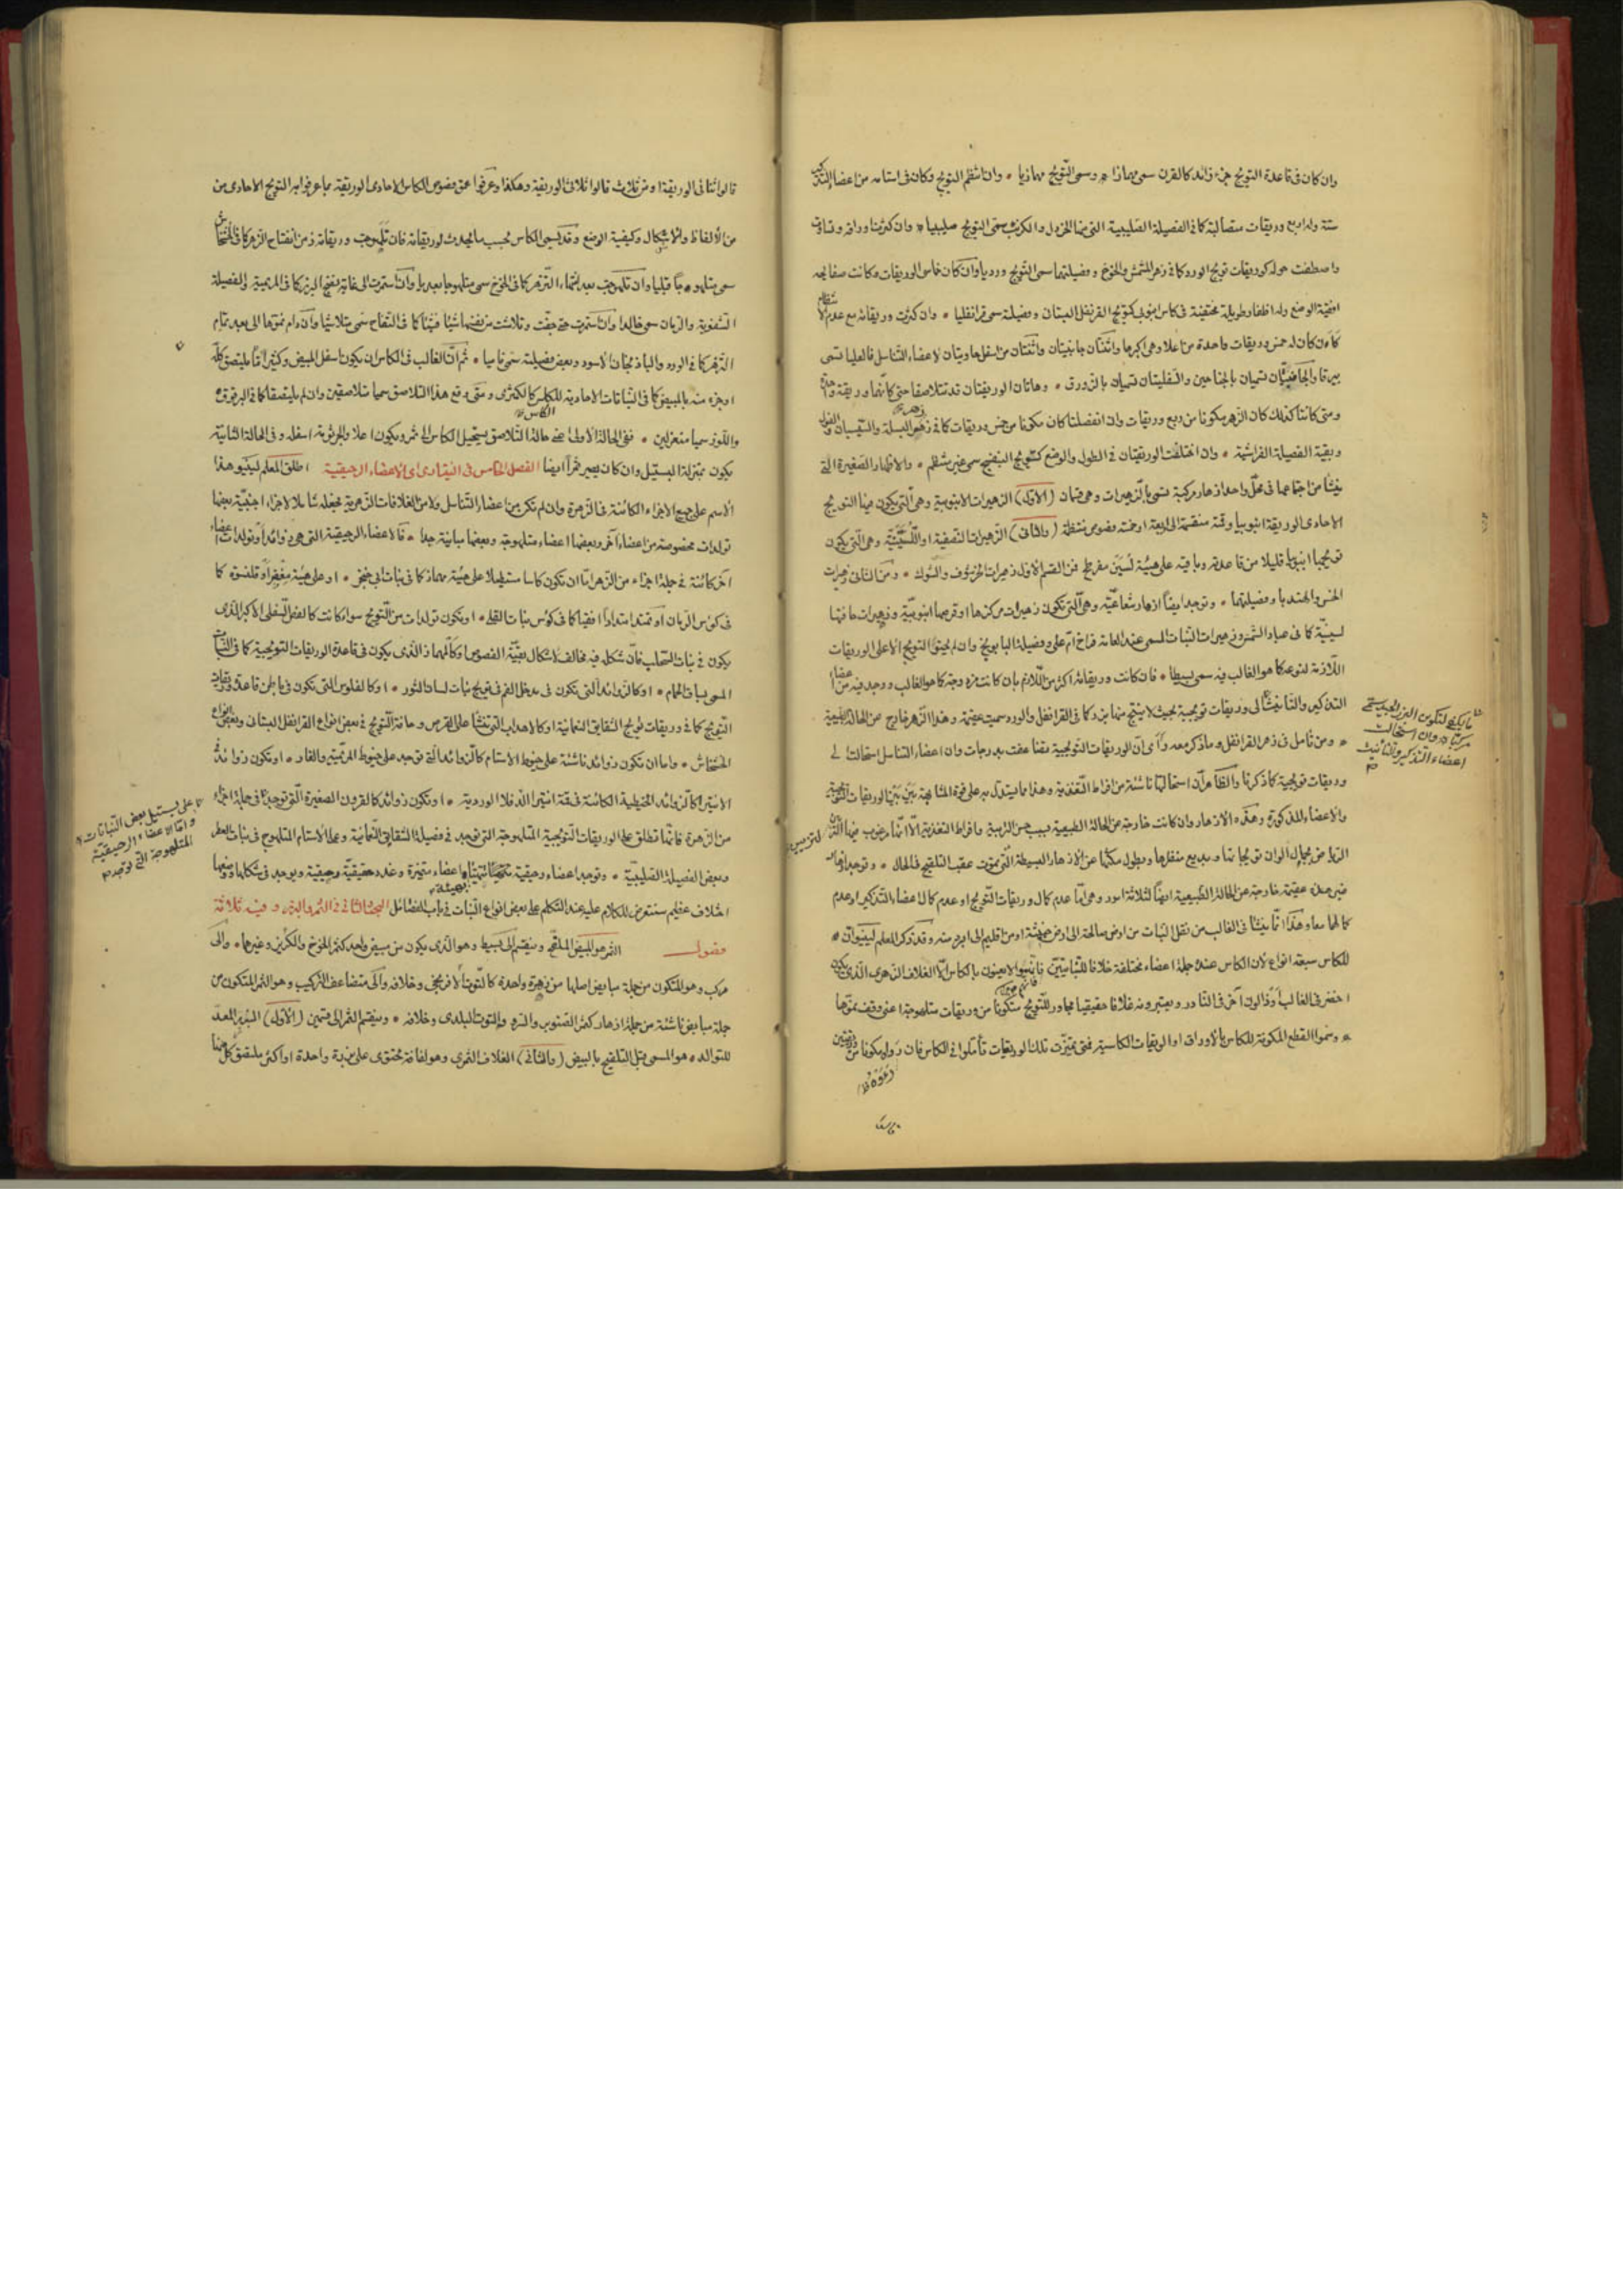 وان كان في قاعدة التويج جزء زائد كالقرن سمى مهمازا وسمى التويج مهمازيا وان انتظم التويج وكان في استامه من اعضاء التذكير
ستة وله اربع وريقات متصالبة كما في الفصيلة الصليبية التي منها الخردل والكرنب سمى التويج صليبيا وان كثرت اوراقه وتساوت
واصطفت حوله كوريقات تويج الورد كما في زهر المشمش والخوخ وفصيلتهما سمى التويج ورديا وان كان خماسى الوريقات وكانت صفايحه
افقية الوضع وله اظفار طويلة مختفية في كاس انبوبى كتويج القرنفل البستانى وفصيلته سمى قرنفليا وان كثرت وريقاته مع عدم الانتظام
كأن كان له خمس وريقات واحدة من اعلا وهى اكبرها واثنتان جانبيتان واثنتان من اسفلها وقيتان لاعضاء التناسل فالعليا تسمى
بيرقا والجانبيتان تسميان بالجناحين والسفليتان تسميان بالزورق وهاتان الوريقتان قد تتلاصقا حتى كأنهما وريقة واحدة
ومتى كانتا كذلك كان الزهر مكونا من اربع وريقات وان انفصلتا كان مكونا من خمس وريقات كما في زهر البسلة والسيسبان والفول
وبقية الفصيلة الفراشية وان اختلفت الوريقتان في الطول والوضع كتويج البنفسج سمى غير منتظم والازهار الصغيرة التى
ينشأ من اجتماعها في محل واحد ازهار مركبة تسمى بالزهيرات وهى قسمان (الاول) الزهيرات الانبوبية وهى التى يكون فيها التويج
الاحادى الوريقة انبوبيا وقمته منقسمة الى اربعة او خمسة فصوص منتظمة (والثانى) الزهيرات النصفية او اللسينية وهى التى يكون
تويجها انبوبيا قليلا من قاعدته وباقيه على هيئة لسين مفرطح فمن القسم الاول زهيرات الخرشوف والشوك ومن الثانى زهيرات
الخس والهندبا وفصيلتهما وتوجد ايضا ازهار شعاعية وهى التى تكون زهيرات مركزها او قرصها انبوبية وزهيرات حافتها
لسينية كما في عباد الشمس وزهيرات النبات المسمى عند العامة فراخ ام على وفصيلة البابونج وان لم يحتو التويج الا على الوريقات
اللازمة لنوعه كما هو الغالب فيه سمى بسيطا فان كانت وريقاته اكثر من اللازم بان كانت مزدوجة كما هو الغالب ووجد فيه من اعضاء
التذكير والتأنيث وريقات تويجية بحيث لا ينتج منها بزر كما في القرنفل والورد سميت عقيمة وهذا الزهر خارج عن الحالة الطبيعية
ومن تأمل في زهر القرنفل وما ذكر معه رأى ان الوريقات التويجية تضاعفت بدرجات وان اعضاء التناسل استحالت الى
وريقات تويجية كما ذكرنا والظاهر أن استحالتها ناشئة من افراط التغذية وهذا مما يستدل به على قوة المشابهة بين الوريقات التويجية
والاعضاء المذكورة وهذه الازهار وان كانت خارجة عن الحالة الطبيعية بسبب حسن التربية وافراط التغذية الا انها مرغوب فيها لتزيين
الزهار من جمال الوان تويجاتها وبديع منظرها وبطول مكثها عن الازهار البسيطة التى تموت عقب التلقيح في الحال وتوجد ازهار
غير عقيمة خارجة عن الحالة الطبيعية ايضا لثلاثة امور وهى اما عدم كمال وريقات التويج او عدم كمال اعضاء التذكير او عدم
كمالها معا وهذا انما ينشأ في الغالب من نقل النبات من ارض صالحة الى ارض خبيثة او من اقليم الى ابرد منه وقد ذكر المعلم لينيوان
للكاس سبعة انواع لان الكاس عنده جملة اعضاء مختلفة خلافا للنباتيين فانهم لا يعنون بالكاس الا الغلاف الزهرى الذى يكون
اخضر في الغالب وذا لون آخر في النادر ويعتبرونه غلافا حقيقيا مجاور للتويج متكونا من وريقات متلهوجة اعنى وقف نموها
وسموا القطع المكونة للكاس بالاوراق او الوريقات الكاسية فمتى تميزت تلك الوريقات تأملوا في الكاس فان رأوه مكونا من وريقتين
ما يكفى لتكون البزر الجيد سمى
مركبا وان استحالت
اعضاء التذكير والتأنيث
قالوا ثنائى الوريقة او من ثلاث قالوا ثلاثى الوريقة وهكذا وعرفوا عن فصوص الكاس الاحادى الوريقة بما عرفوا به التويج الاحادى من
من الالفاظ والاشكال وكيفية الوضع وقد يسمى الكاس بحسب ما يحدث لوريقاته فان تلهوجت وريقاته زمن انفتاح الزهر كما في الخشخاش
سمى متلهوجا قبليا وان تلهوجت بعد انتهاء التزهر كما في الخوخ سمى متلهوجا بعديا وان استمرت الى غاية نضج البزر كما في المريمية والفصيلة
الشفوية والرمان سمى خالدا وان استمرت حتى جفت وتلاشت من نفسها شيئا فشيئا كما في التفاح سمى متلاشيا وان دام نموها الى بعد تمام
الزهر كما في الورد والباذنجان الاسود وبعض فصيلته سمى ناميا ثم ان الغالب في الكاس ان يكون اسفل المبيض وكثيرا ما يلتصق كله
او جزء منه بالمبيض كما في النباتات الاحادية للكاس كالكمثرى ومتى وقع هذا التلاصق سميا متلاصقين وان لم يلتصقا كما في البرقوق
واللوز سميا منعزلين ففى الحالة الاولى اعنى حالة التلاصق يستحيل الكاس الى ثمر ويكون اعلا والجرثومة اسفله وفى الحالة الثانية
يكون بمنزلة البستيل وان كان يصير ثمرا ايضا الفصل الخامس في النيقتارى اى الاعضاء الرحيقية اطلق المعلم لينيو هذا
الاسم على جميع الاجزاء الكائنة في الزهرة وان لم تكن من اعضاء التناسل ولا من الغلافات الزهرية فجعله شاملا لاجزاء اجنبية بعضها
تولدات مخصوصة من اعضاء آخر وبعضها اعضاء متلهوجة وبعضها مباينة جدا فالاعضاء الرحيقية التى هى زوائد او تولدات اعضاء
آخر كائنة في جملة اجزاء من الزهر اما ان تكون كاسا مستطيلا على هيئة مهماز كما في نبات ابى خنجر او على هيئة مغفر او قلنسوة كما
في كؤس الرمان او تمتد امتدادا افقيا كما في كؤس نبات القلى او يكون تولدات من التويج سواء كانت كالفص السفلى الاكبر الذى
يكون في نبات السحلب فان شكله فيه مخالف لاشكال بقية الفصوص او كالمهماز الذى يكون في قاعدة الوريقات التويجية كما في النبات
المسمى بساق الحمام او كالزوائد التى تكون في مدخل الفم في تويج نبات لسان الثور او كالفلوس التى تكون في باطن قاعدة وريقات
التويج كما في وريقات تويج الشقايق النعمانية او كالاهداب التى تنشأ على القرص وحافة التويج في بعض انواع القرنفل البستانى وبعض انواع
الخشخاش واما ان تكون زوائد ناشئة على خيوط الاستام كالزوائد التى توجد على خيوط المريمية والغار او تكون زوائد في
الانتيرا كالزوائد الخيطية الكائنة في قمة انتيرا الدفلا الوردية او تكون زوائد كالقرون الصغيرة التى توجد في جملة اجزاء
من الزهرة فانها تطلق على الوريقات التويجية المتلهوجة التى توجد في فصيلة الشقايق النعمانية وعلى الاستام المتلهوج في نبات العطر
وبعض الفصيلة الصليبية وتوجد اعضاء رحيقية اعضاء متميزة وغدد حقيقية رحيقية ويوجد في شكلها ووضعها
اختلاف عظيم سنتعرض للكلام عليه عند التكلم على بعض انواع النبات في باب الفصائل المبحث الثانى في الثمر والبزر وفيه ثلاثة
فصول الثمر هو المبيض الملقح وينقسم الى بسيط وهو الذى يكون من مبيض واحد كثمر الخوخ والكريز وغيرها والى
مركب وهو المتكون من جملة مبايض اصلها من زهرة واحدة كالتوت الافرنجى وخلافه والى متضاعف التركيب وهو الثمر المتكون من
جملة مبايض ناشئة من جملة ازهار كثمر الصنوبر والسرو والتوت البلدى وخلافه وينقسم الثمر الى قسمين (الاول) البزر المعد
للتوالد هو المسمى قبل التلقيح بالبيض (والثانى) الغلاف الثمرى وهو لفافة تحتوى على بزرة واحدة او اكثر ملتصق كل منها
على بستيل بعض النباتات
واما الاعضاء الرحيقية
المتلهوجة التى توجد